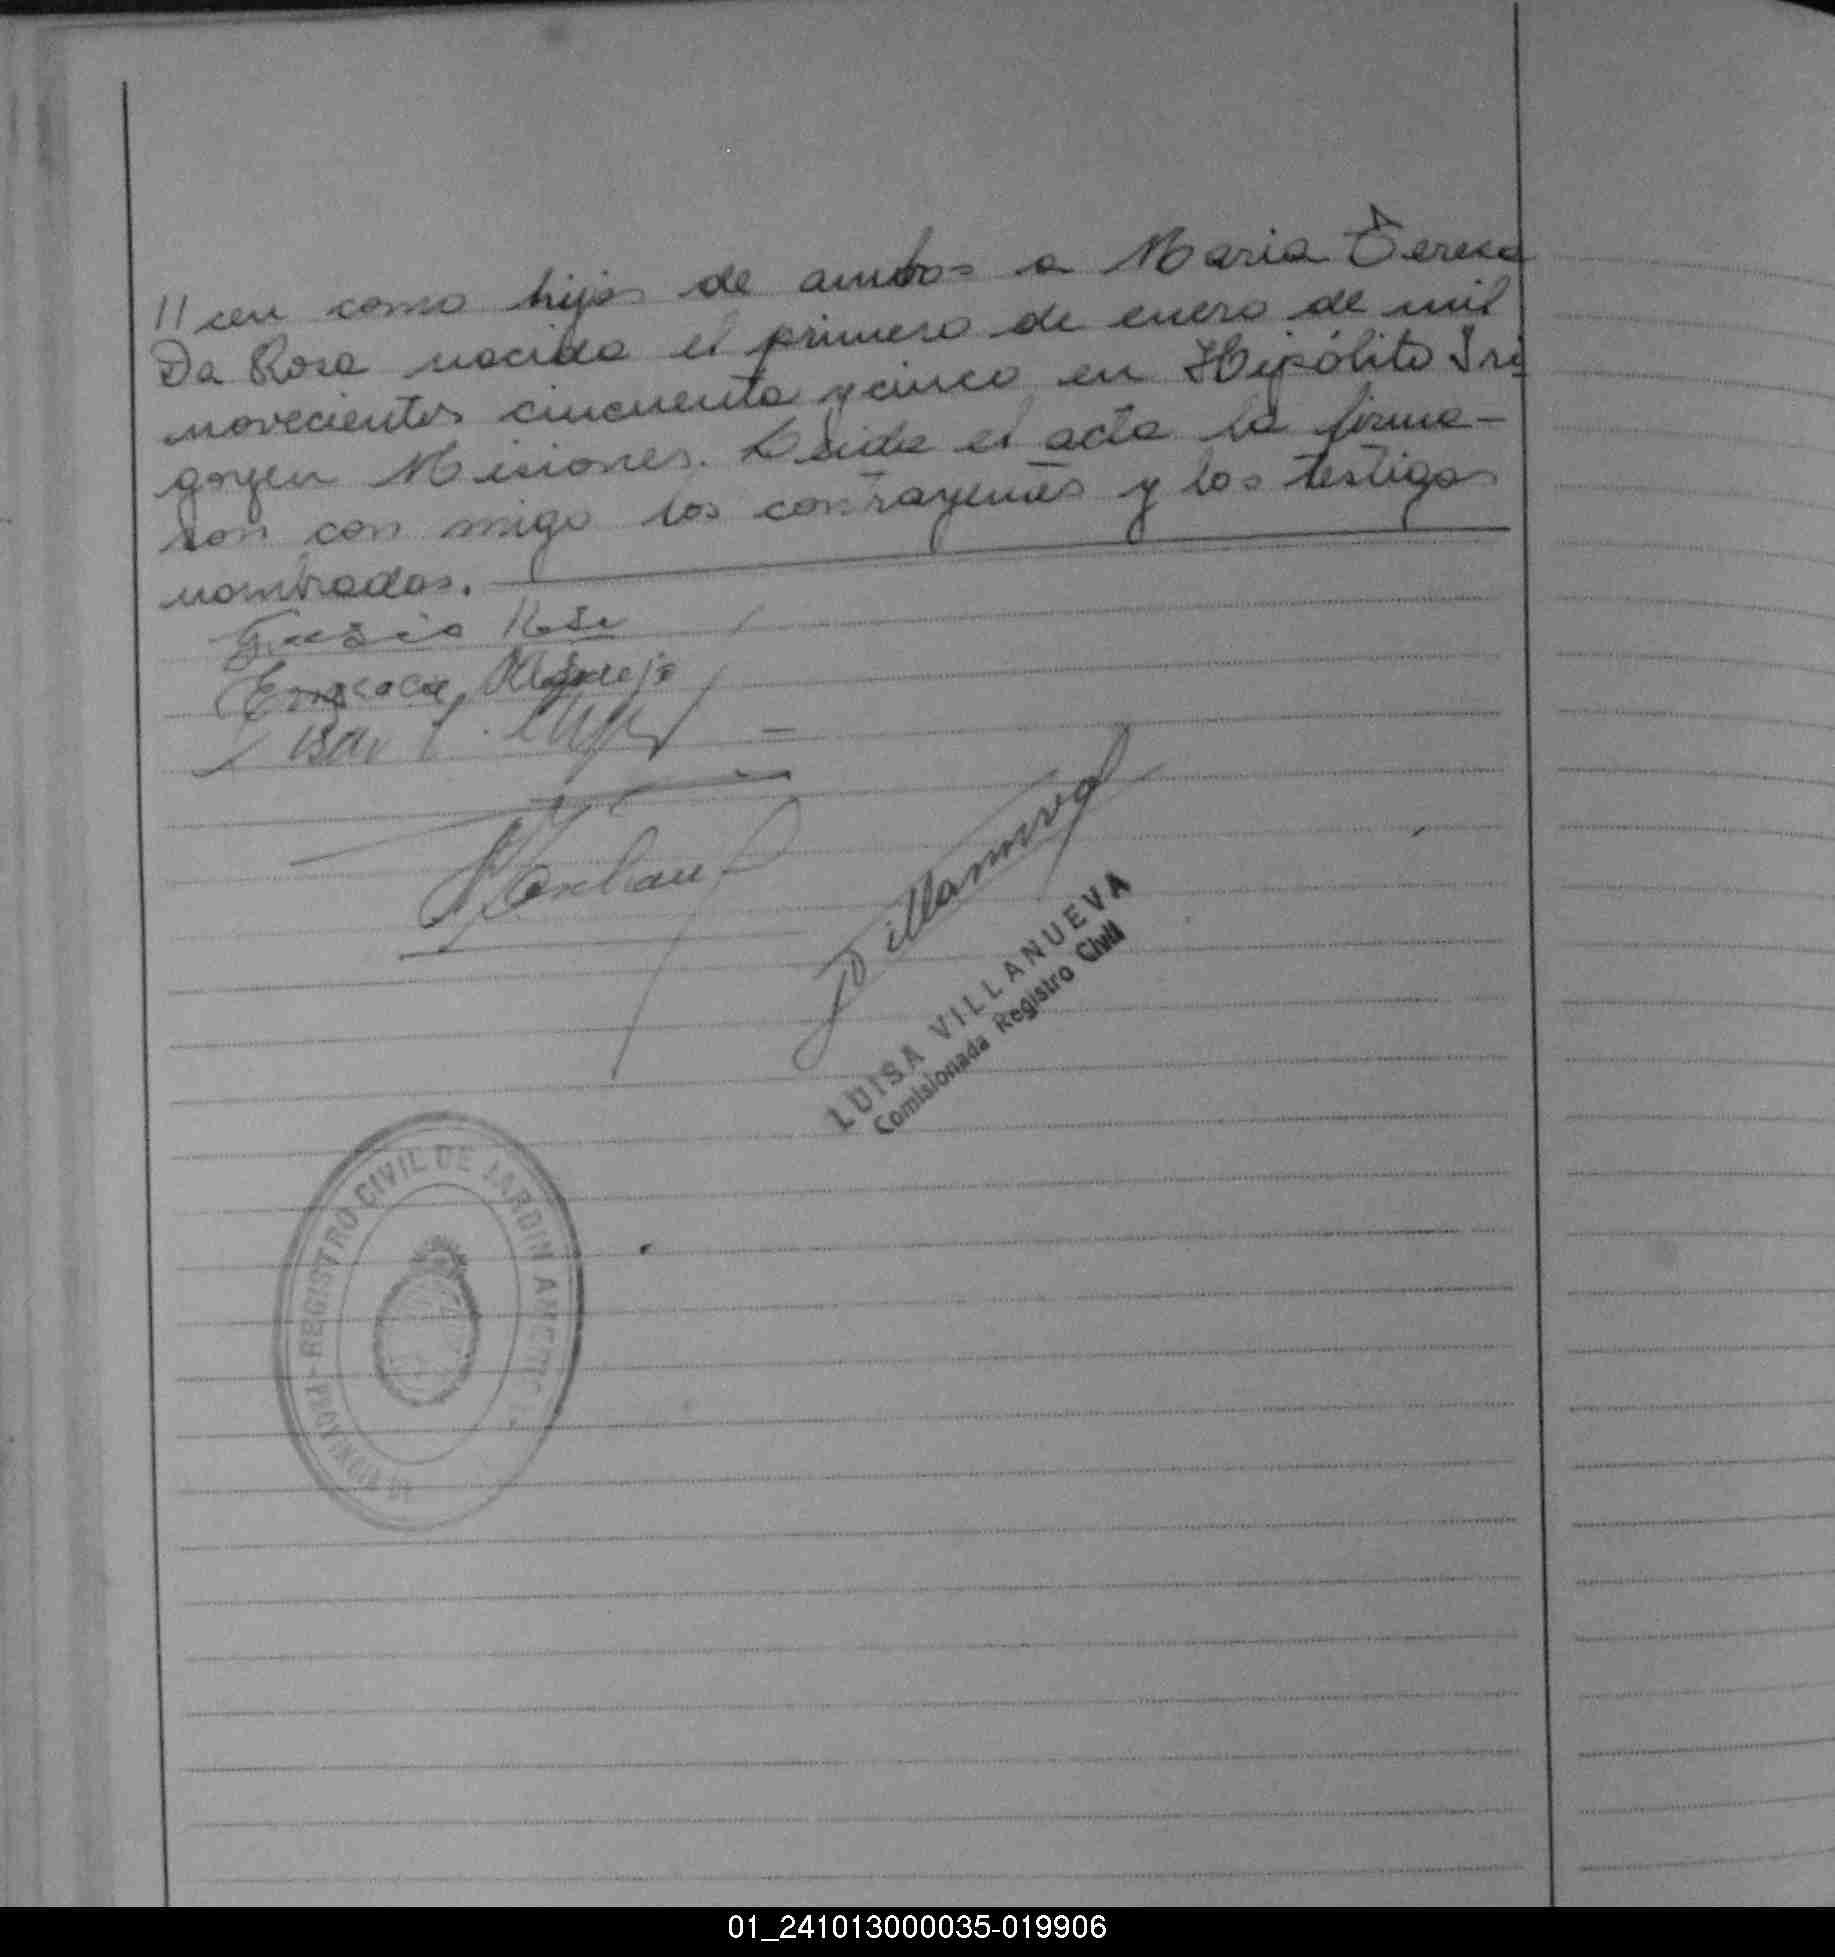 //cen como hijos de ambos a Maria Teresa
Da Rosa nacida el primero de enero de mil
novecientos cincuenta y cinco en Hipólito Iri
goyen Misiones. Leida el acta la firma-
ron con migo los contrayentes y los testigos
nombrados.
Villanueva
LUISA VILLANUEVA
Comisionada Registro Civil
REGISTRO CIVIL DE JARDIN AMERICA
01_241013000035-019906